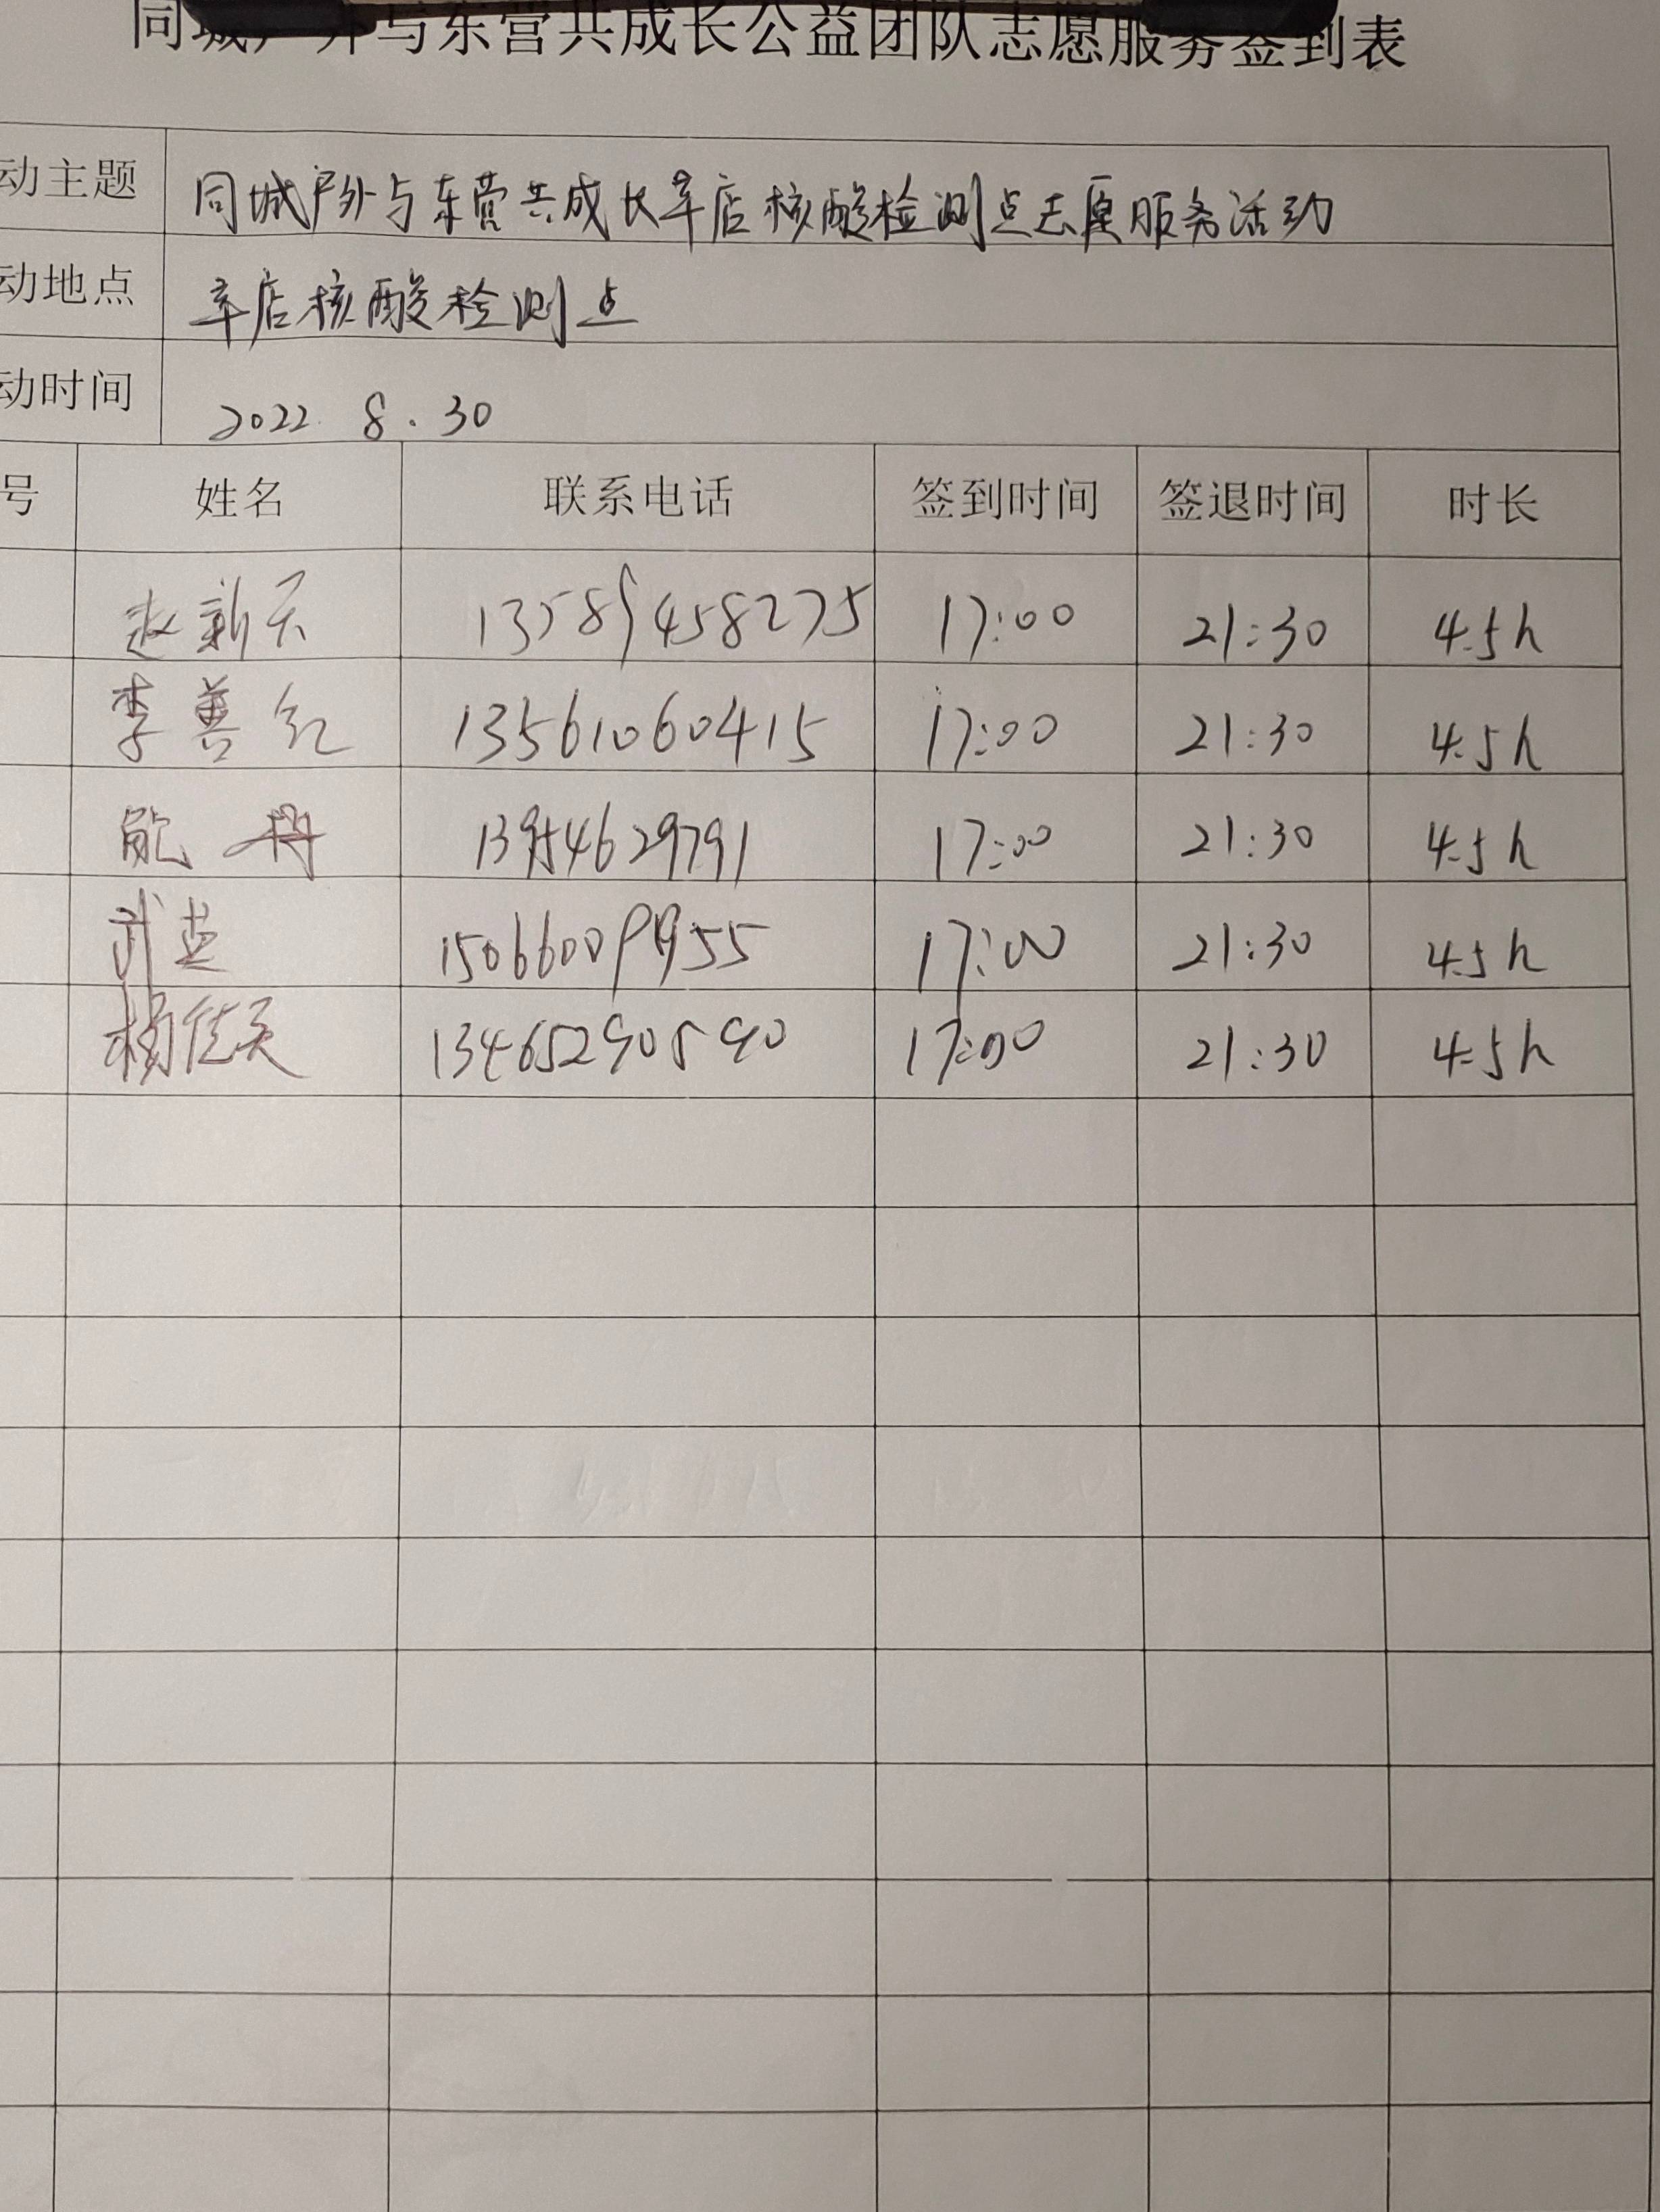 同城户外与东营共成长公益团队志愿服务签到表
动主题 同城户外与东营共成长辛店核酸检测点志愿服务活动
动地点 辛店核酸检测点
动时间 2022. 8. 30
号 姓名 联系电话 签到时间 签退时间 时长
赵新天 13589458275 17:00 21:30 4.5h
李善红 13561060415 17:00 21:30 4.5h
熊丹 13954629791 17:00 21:30 4.5h
武英 15066009955 17:00 21:30 4.5h
杨佳天 13465290590 17:00 21:30 4.5h